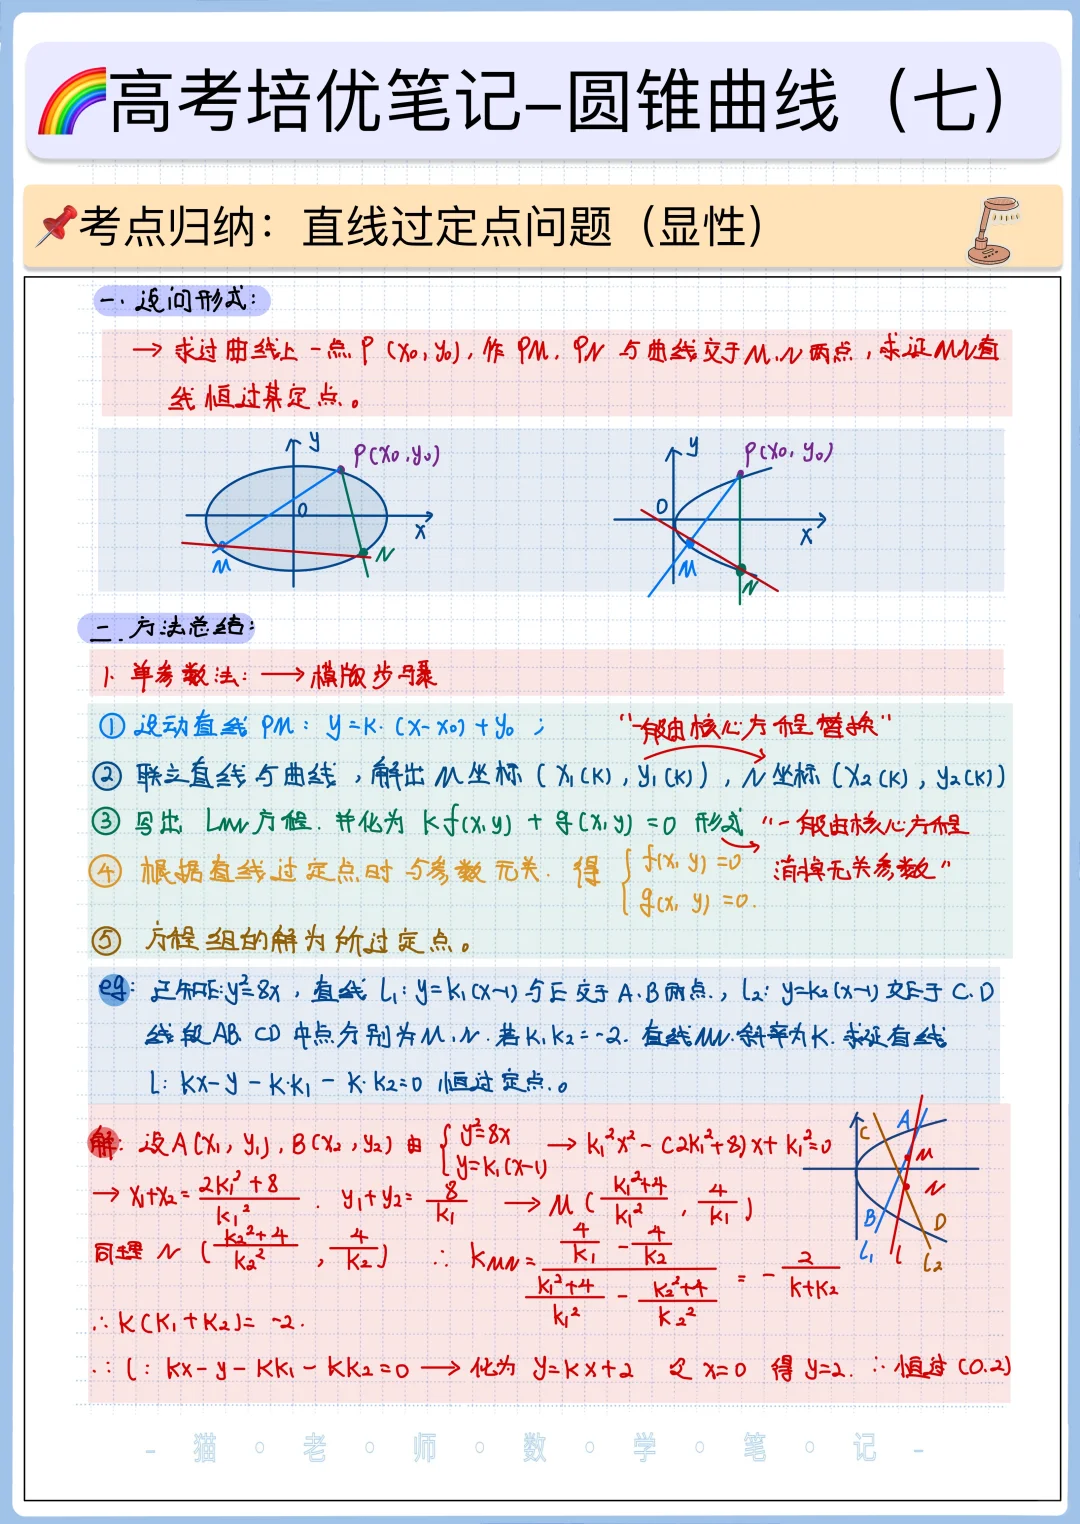 高考培优笔记-圆锥曲线（七）
考点归纳：直线过定点问题（显性）
一.设问形式：
→ 求过曲线上一点P(x₀,y₀)，作PM、PN与曲线交于M、N两点，求证MN直
线恒过某定点。
y P(x₀,y₀) O x M N
y P(x₀,y₀) O x M N
二.方法总结：
1. 单参数法：→ 模版步骤
① 设动直线PM：y=k·(x-x₀)+y₀； “一般由核心方程替换”
② 联立直线与曲线，解出M坐标(x₁(k),y₁(k))，N坐标(x₂(k),y₂(k))
③ 写出LMN方程.并化为kf(x,y)+g(x,y)=0形式 “一般由核心方程
④ 根据直线过定点时与参数无关.得{f(x,y)=0 消掉无关参数”
g(x,y)=0.
⑤ 方程组的解为所过定点。
eg：已知E:y²=8x，直线l₁:y=k₁(x-1)与E交于A.B两点.，l₂:y=k₂(x-1)交E于C.D
线段AB、CD中点分别为M、N.若k₁k₂=-2.直线MN.斜率为k.求证直线
l：kx-y-k·k₁-k·k₂=0恒过定点.。
解：设A(x₁,y₁),B(x₂,y₂)由{y²=8x y=k₁(x-1) → k₁²x²-(2k₁²+8)x+k₁²=0
→ x₁+x₂=(2k₁²+8)/k₁². y₁+y₂=8/k₁ → M((k₁²+4)/k₁²,4/k₁)
同理N((k₂²+4)/k₂²,4/k₂) ∴ kMN=(4/k₁-4/k₂)/((k₁²+4)/k₁²-(k₂²+4)/k₂²)=-2/(k+k₂)
C A M N B D l₁ l l₂
∴k(k₁+k₂)=-2.
∴l：kx-y-kk₁-kk₂=0 → 化为y=kx+2 令x=0 得y=2. ∴恒过(0.2)
- 猫·老·师·数·学·笔·记 -